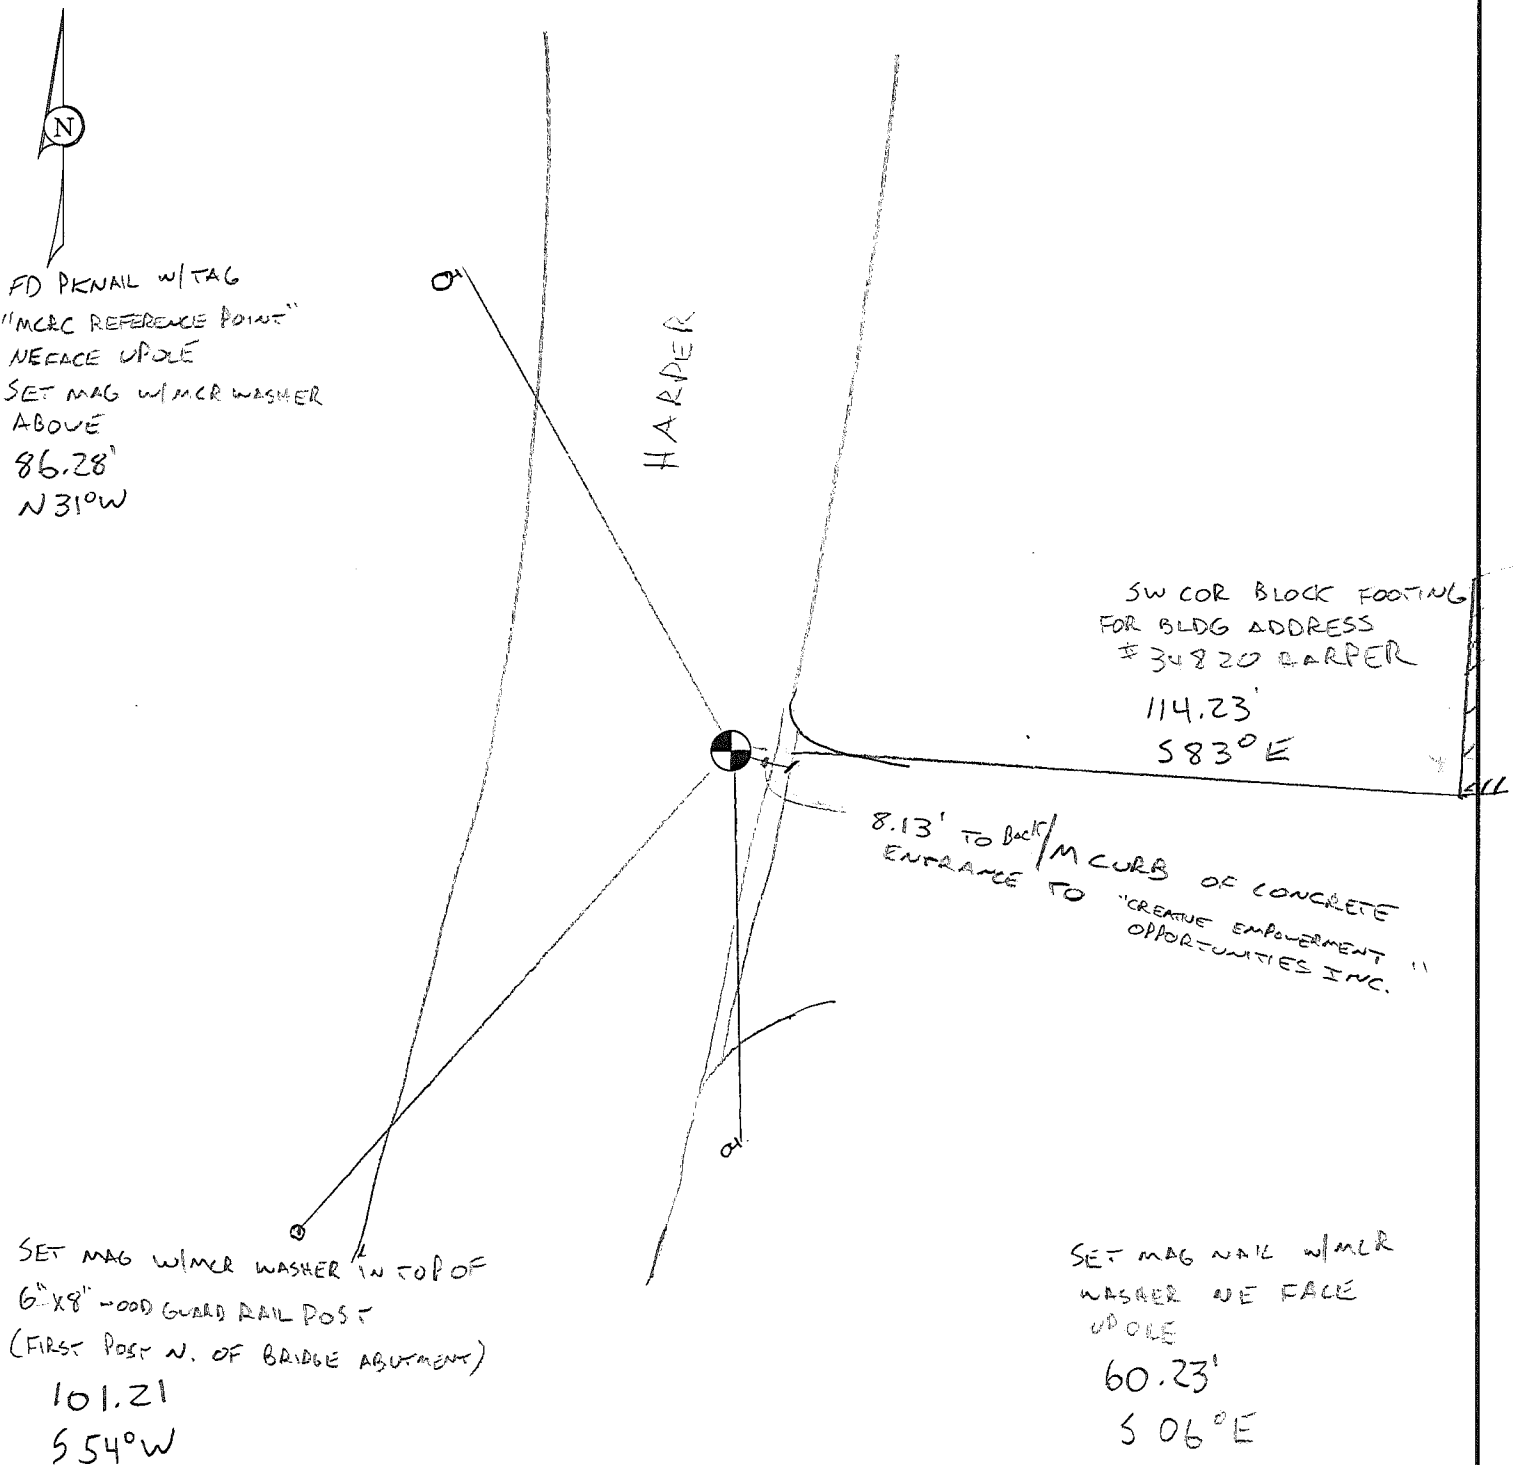 N
FD PKNAIL W/TAG
"MCRC REFERENCE POINT"
NE FACE UPOLE
SET MAG W/MCR WASHER
ABOVE
86.28'
N 31° W
HARPER
SW COR BLOCK FOOTING
FOR BLDG ADDRESS
# 34820 HARPER
114.23'
S 83° E
8.13' TO Back/M CURB OF CONCRETE
ENTRANCE TO "CREATIVE EMPOWERMENT
OPPORTUNITIES INC."
SET MAG W/MCR WASHER IN TOP OF
6"X8" WOOD GUARD RAIL POST
(FIRST POST N. OF BRIDGE ABUTMENT)
101.21
S 54° W
SET MAG NAIL W/MCR
WASHER NE FACE
UPOLE
60.23'
S 06° E